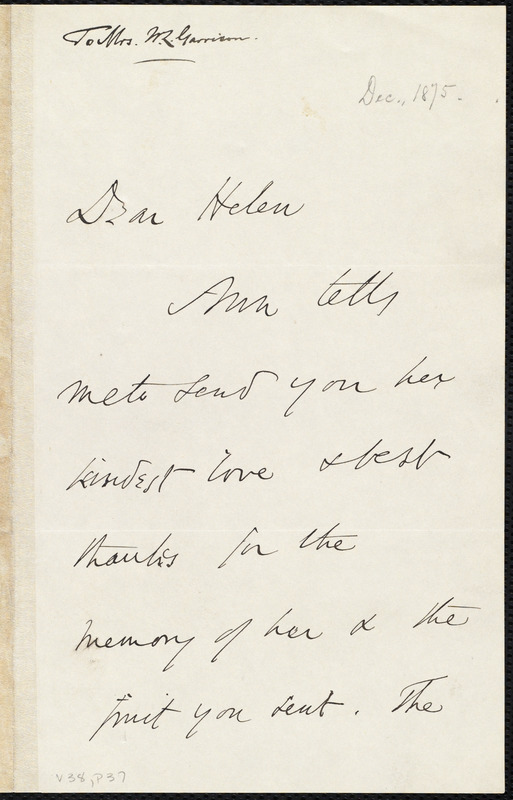 To Mrs. W. L. Garrison.
Dec., 1875.
Dear Helen
Ann tells
me to send you her
kindest love & best
thanks for the
memory of her & the
fruit you sent. The
V38, P37